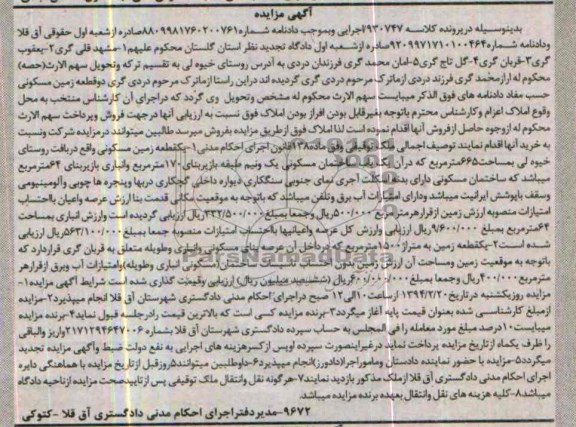 آگهی مزایده
بدینوسیله درپرونده کلاسه ۹۳۰۷۴۷/اجرایی وبموجب دادنامه شماره ۸۸۰۹۹۸۱۷۶۰۲۰۰۷۶۱صادره ازشعبه اول حقوقی آق قلا
ودادنامه شماره ۹۲۰۹۹۷۱۷۱۰۱۰۰۴۶۴صادره ازشعبه اول دادگاه تجدید نظر استان گلستان محکوم علیهم۱-مشهد قلی گری۲-یعقوب
گری۳-قربان گری۴-گل تاج گری۵-امان محمد گری فرزندان دردی به آدرس روستای خیوه لی به تقسیم ترکه وتحویل سهم الارث(حصه)
محکوم له ازمحمد گری فرزند دردی ازماترک مرحوم دردی گری گردیده اند دراین راستا ازماترک مرحوم دردی گری دوقطعه زمین مسکونی
حسب مفاد دادنامه های فوق الذکر میبایست سهم الارث محکوم له مشخص وتحویل وی گردد که دراجرای آن کارشناس منتخب به محل
وقوع املاک اعزام وکارشناس محترم باتوجه بغیرقابل بودن افراز بودن املاک فوق نسبت به ارزیابی آنها درجهت فروش وپرداخت سهم الارث
محکوم له ازوجوه حاصل ازفروش آنها اقدام نموده است لذا املاک فوق ازطریق مزایده بفروش میرسد طالبین میتوانند درمزایده شرکت ونسبت
به خرید آنها اقدام نمایند توصیف اجمالی ملک توقیفی وفق ماده۱۳۸قانون اجرای احکام مدنی ۱-یکقطعه زمین مسکونی واقع دریافت روستای
خیوه لی بمساحت۶۶۵مترمربع که درآن یک ساختمان مسکونی یک ونیم طبقه بازیربنای ۱۷۰مترمربع وانباری بازیربنای ۶۴مترمربع
میباشد که ساختمان مسکونی دارای بدنه آجری نمای جنوبی سنگکاری دیواره داخلی گچکاری دربها وپنجره ها چوبی وآلومینیومی
وسقف باپوشش ایرانیت میباشد ودارای امتیازات آب برق وتلفن میباشد که باتوجه به موقعیت مکانی قدمت بنا ارزش عرصه واعیان بااحتساب
امتیازات منصوبه ارزش زمین ازقرارهرمترمربع ۵۰۰/۰۰۰ریال وجمعا بمبلغ ۳۳۲/۵۰۰/۰۰۰ریال ارزیابی گردیده است وارزش انباری بمساحت
۶۴مترمربع بمبلغ ۹/۶۰۰/۰۰۰ریال ارزیابی وارزش کل عرصه واعیانیها بااحتساب امتیازات منصوبه جمعا بمبلغ ۵۶۳/۱۰۰/۰۰۰ریال ارزیابی
شده است۲-یکقطعه زمین به متراژ ۱۵۰۰مترمربع که درداخل آن عرصه بنای مسکونی وانباری وطویله متعلق به قربان گری قراردارد که
باتوجه به موقعیت زمین ومساحت آن ارزش زمین بدون احتساب بنای احداثی(ساختمان مسکونی انباری وطویله)وامتیازات آب وبرق ازقرارهر
مترمربع ۴۰۰/۰۰۰ریال وجمعا بمبلغ ۶۰۰/۰۰۰/۰۰۰ریال (ششصد میلیون ریال) ارزیابی وقیمت گذاری شده است شرایط آگهی مزایده۱-
مزایده روزیکشنبه درتاریخ ۱۳۹۴/۲/۲۰ ازساعت۱۰الی۱۲ صبح دراجرای احکام مدنی دادگستری شهرستان آق قلا انجام میپذیرد۲-مزایده
ازمبلغ کارشناسی شده بعنوان قیمت پایه آغاز میگردد۳-برنده مزایده کسی است که بالاترین قیمت رادرجلسه قبول نماید۴-برنده مزایده
میبایست۱۰درصد مبلغ مورد معامله را فی المجلس به حساب سپرده دادگستری شهرستان آق قلا بشماره ۲۱۷۱۲۹۴۶۴۷۰۰۶واریز والباقی
را ظرف یکماه ازتاریخ مزایده پرداخت نماید درغیراینصورت سپرده اوپس ازکسرهزینه های اجرایی به نفع دولت ضبط وآگهی مزایده تجدید
میگردد۵-مزایده با حضور نماینده دادستان ومامور اجرا(دادورز)انجام میپذیرد۶-داوطلبین میتوانند۵روزقبل ازتاریخ مزایده با هماهنگی دایره
اجرای احکام مدنی دادگستری آق قلا ازملک مذکور بازدید نمایند۷-هرگونه نقل وانتقال ملک توقیفی پس ازتاییدصحت مزایده ازناحیه دادگاه
میباشد۸-کلیه هزینه های نقل وانتقال بعهده برنده مزایده میباشد.
۹۶۷۲-مدیردفتراجرای احکام مدنی دادگستری آق قلا -کتوکی
ParsNamadData